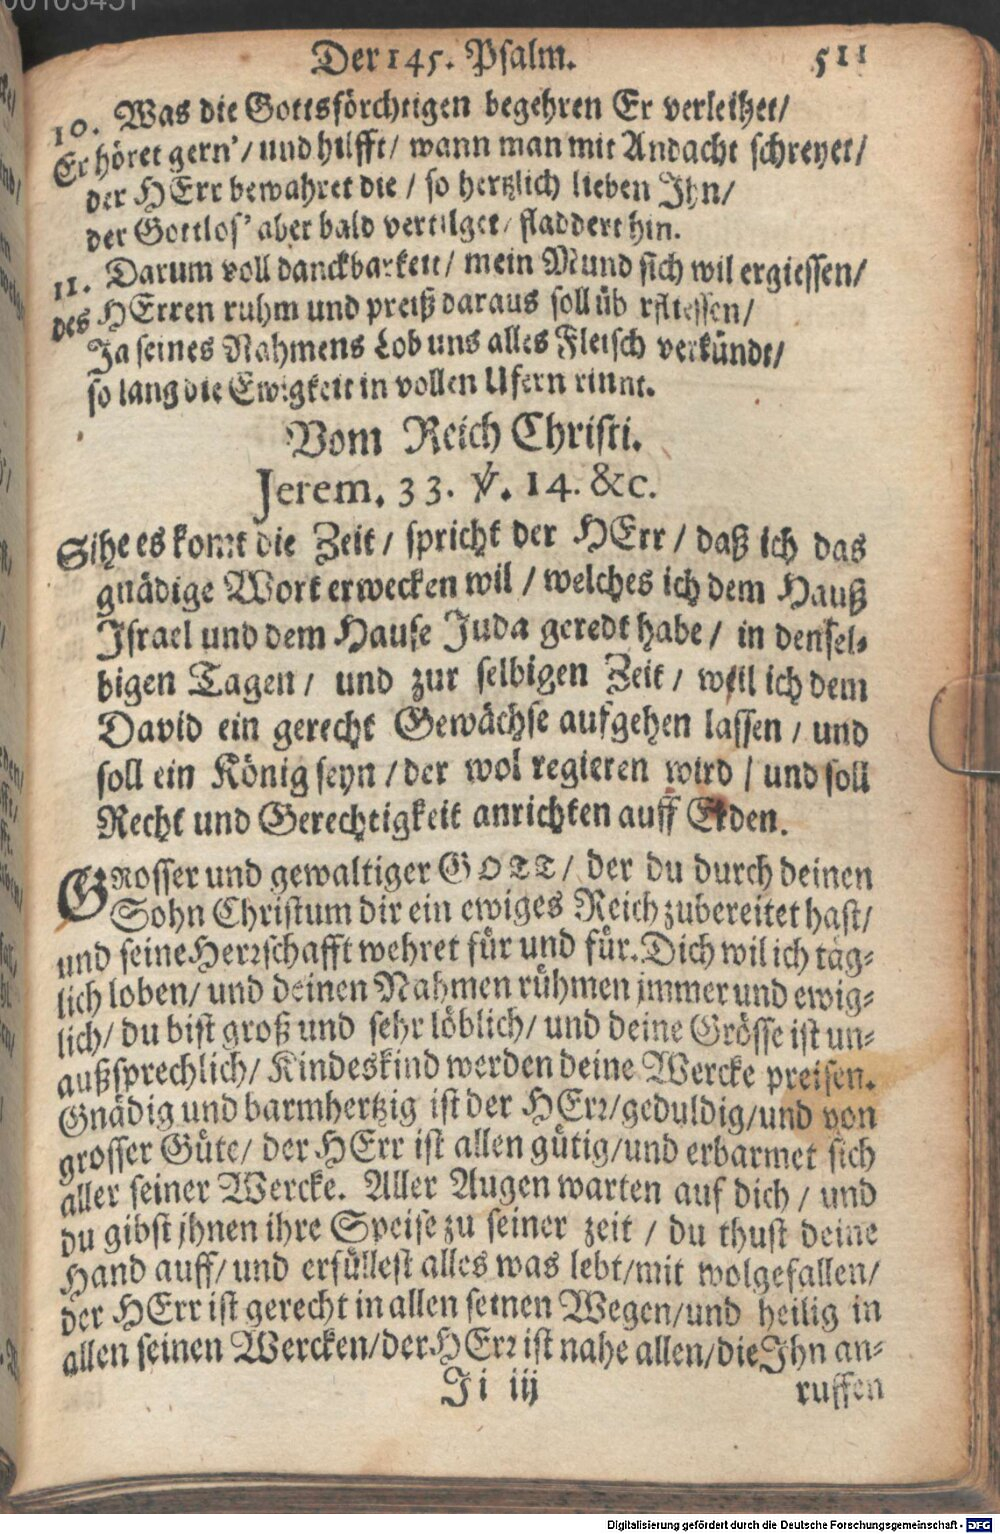 00103451
Der 145. Psalm. 511
10. Was die Gottsförchtigen begehren Er verleihet/
Er höret gern'/ und hilfft/ wann man mit Andacht schreyet/
der HErr bewahret die / so hertzlich lieben Ihn/
der Gottlos' aber bald vertilget/ fladdert hin.
11. Darum voll danckbarkeit/ mein Mund sich wil ergiessen/
des HErren ruhm und preiß daraus soll üb rfliessen/
Ja seines Nahmens Lob uns alles Fleisch verkündt/
so lang die Ewigkeit in vollen Ufern rinnt.
Vom Reich Christi.
Jerem. 33. ℣. 14. &c.
Sihe es komt die Zeit / spricht der HErr / daß ich das
gnädige Wort erwecken wil / welches ich dem Hauß
Israel und dem Hause Juda geredt habe / in densel-
bigen Tagen / und zur selbigen Zeit / wil ich dem
David ein gerecht Gewächse aufgehen lassen / und
soll ein König seyn / der wol regieren wird / und soll
Recht und Gerechtigkeit anrichten auff Erden.
GRosser und gewaltiger GOTT / der du durch deinen
Sohn Christum dir ein ewiges Reich zubereitet hast/
und seine Herrschafft wehret für und für. Dich wil ich täg-
lich loben/ und deinen Nahmen rühmen immer und ewig-
lich/ du bist groß und sehr löblich/ und deine Grösse ist un-
außsprechlich/ Kindeskind werden deine Wercke preisen.
Gnädig und barmhertzig ist der HErr/geduldig/und von
grosser Güte/ der HErr ist allen gütig/und erbarmet sich
aller seiner Wercke. Aller Augen warten auf dich / und
du gibst jhnen ihre Speise zu seiner zeit / du thust deine
Hand auff/ und erfüllest alles was lebt/mit wolgefallen/
der HErr ist gerecht in allen seinen Wegen/und heilig in
allen seinen Wercken/der HErr ist nahe allen/die Ihn an-
Ji iij ruffen
Digitalisierung gefördert durch die Deutsche Forschungsgemeinschaft - DFG